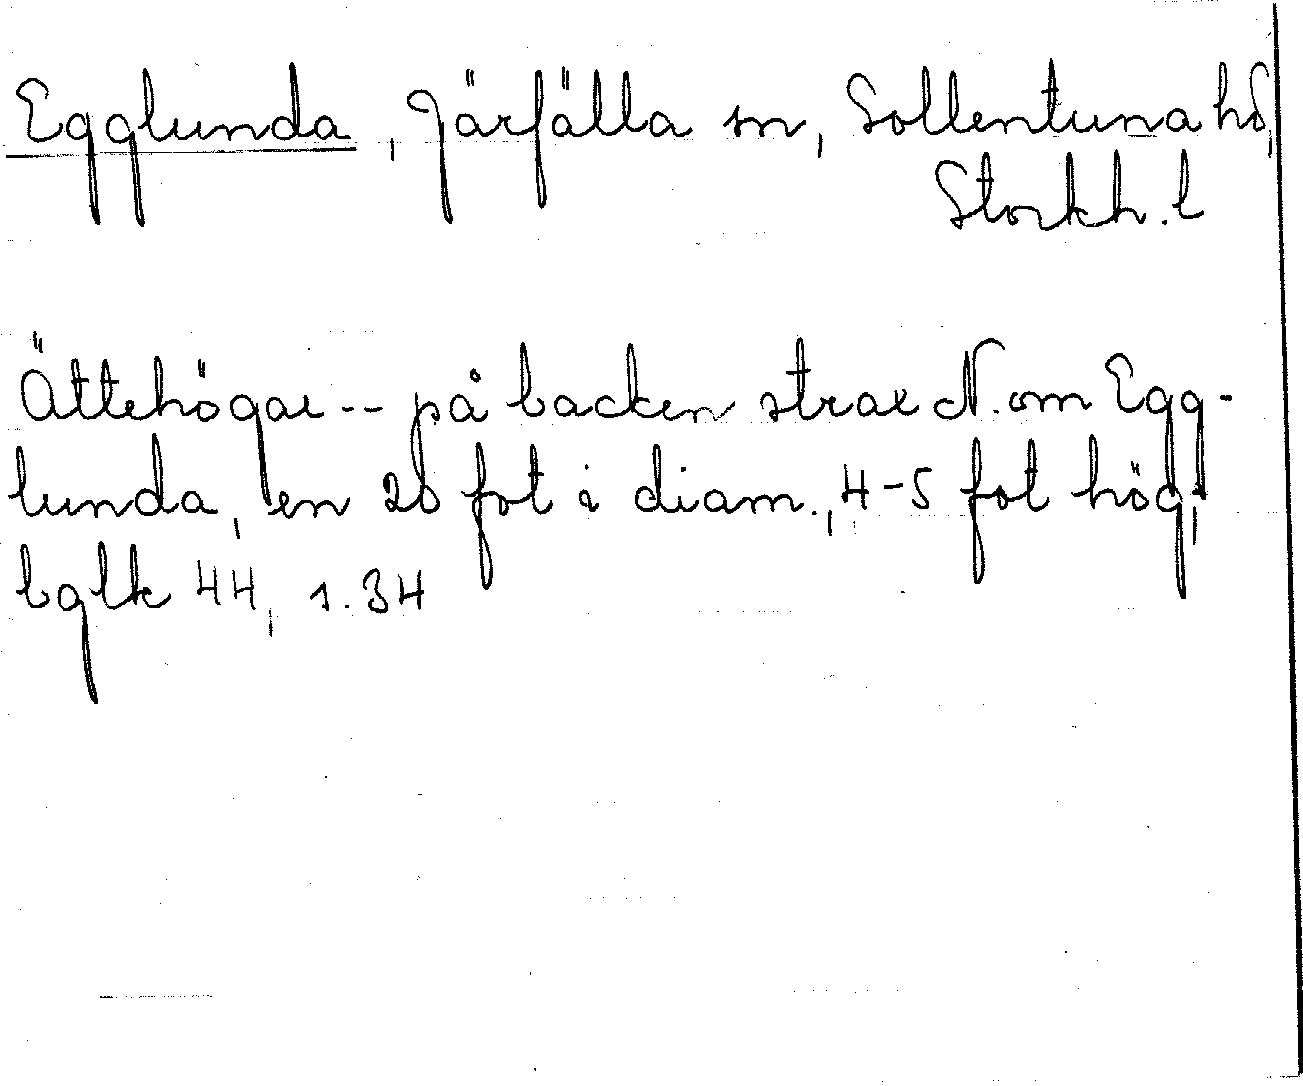 Egglunda, Järfälla sn, Sollentuna hd,
Stockh. l
Ättehögar -- på backen strax N. om Egg-
lunda, en 20 fot i diam., 4-5 fot hög,
bglk 44, 1.34